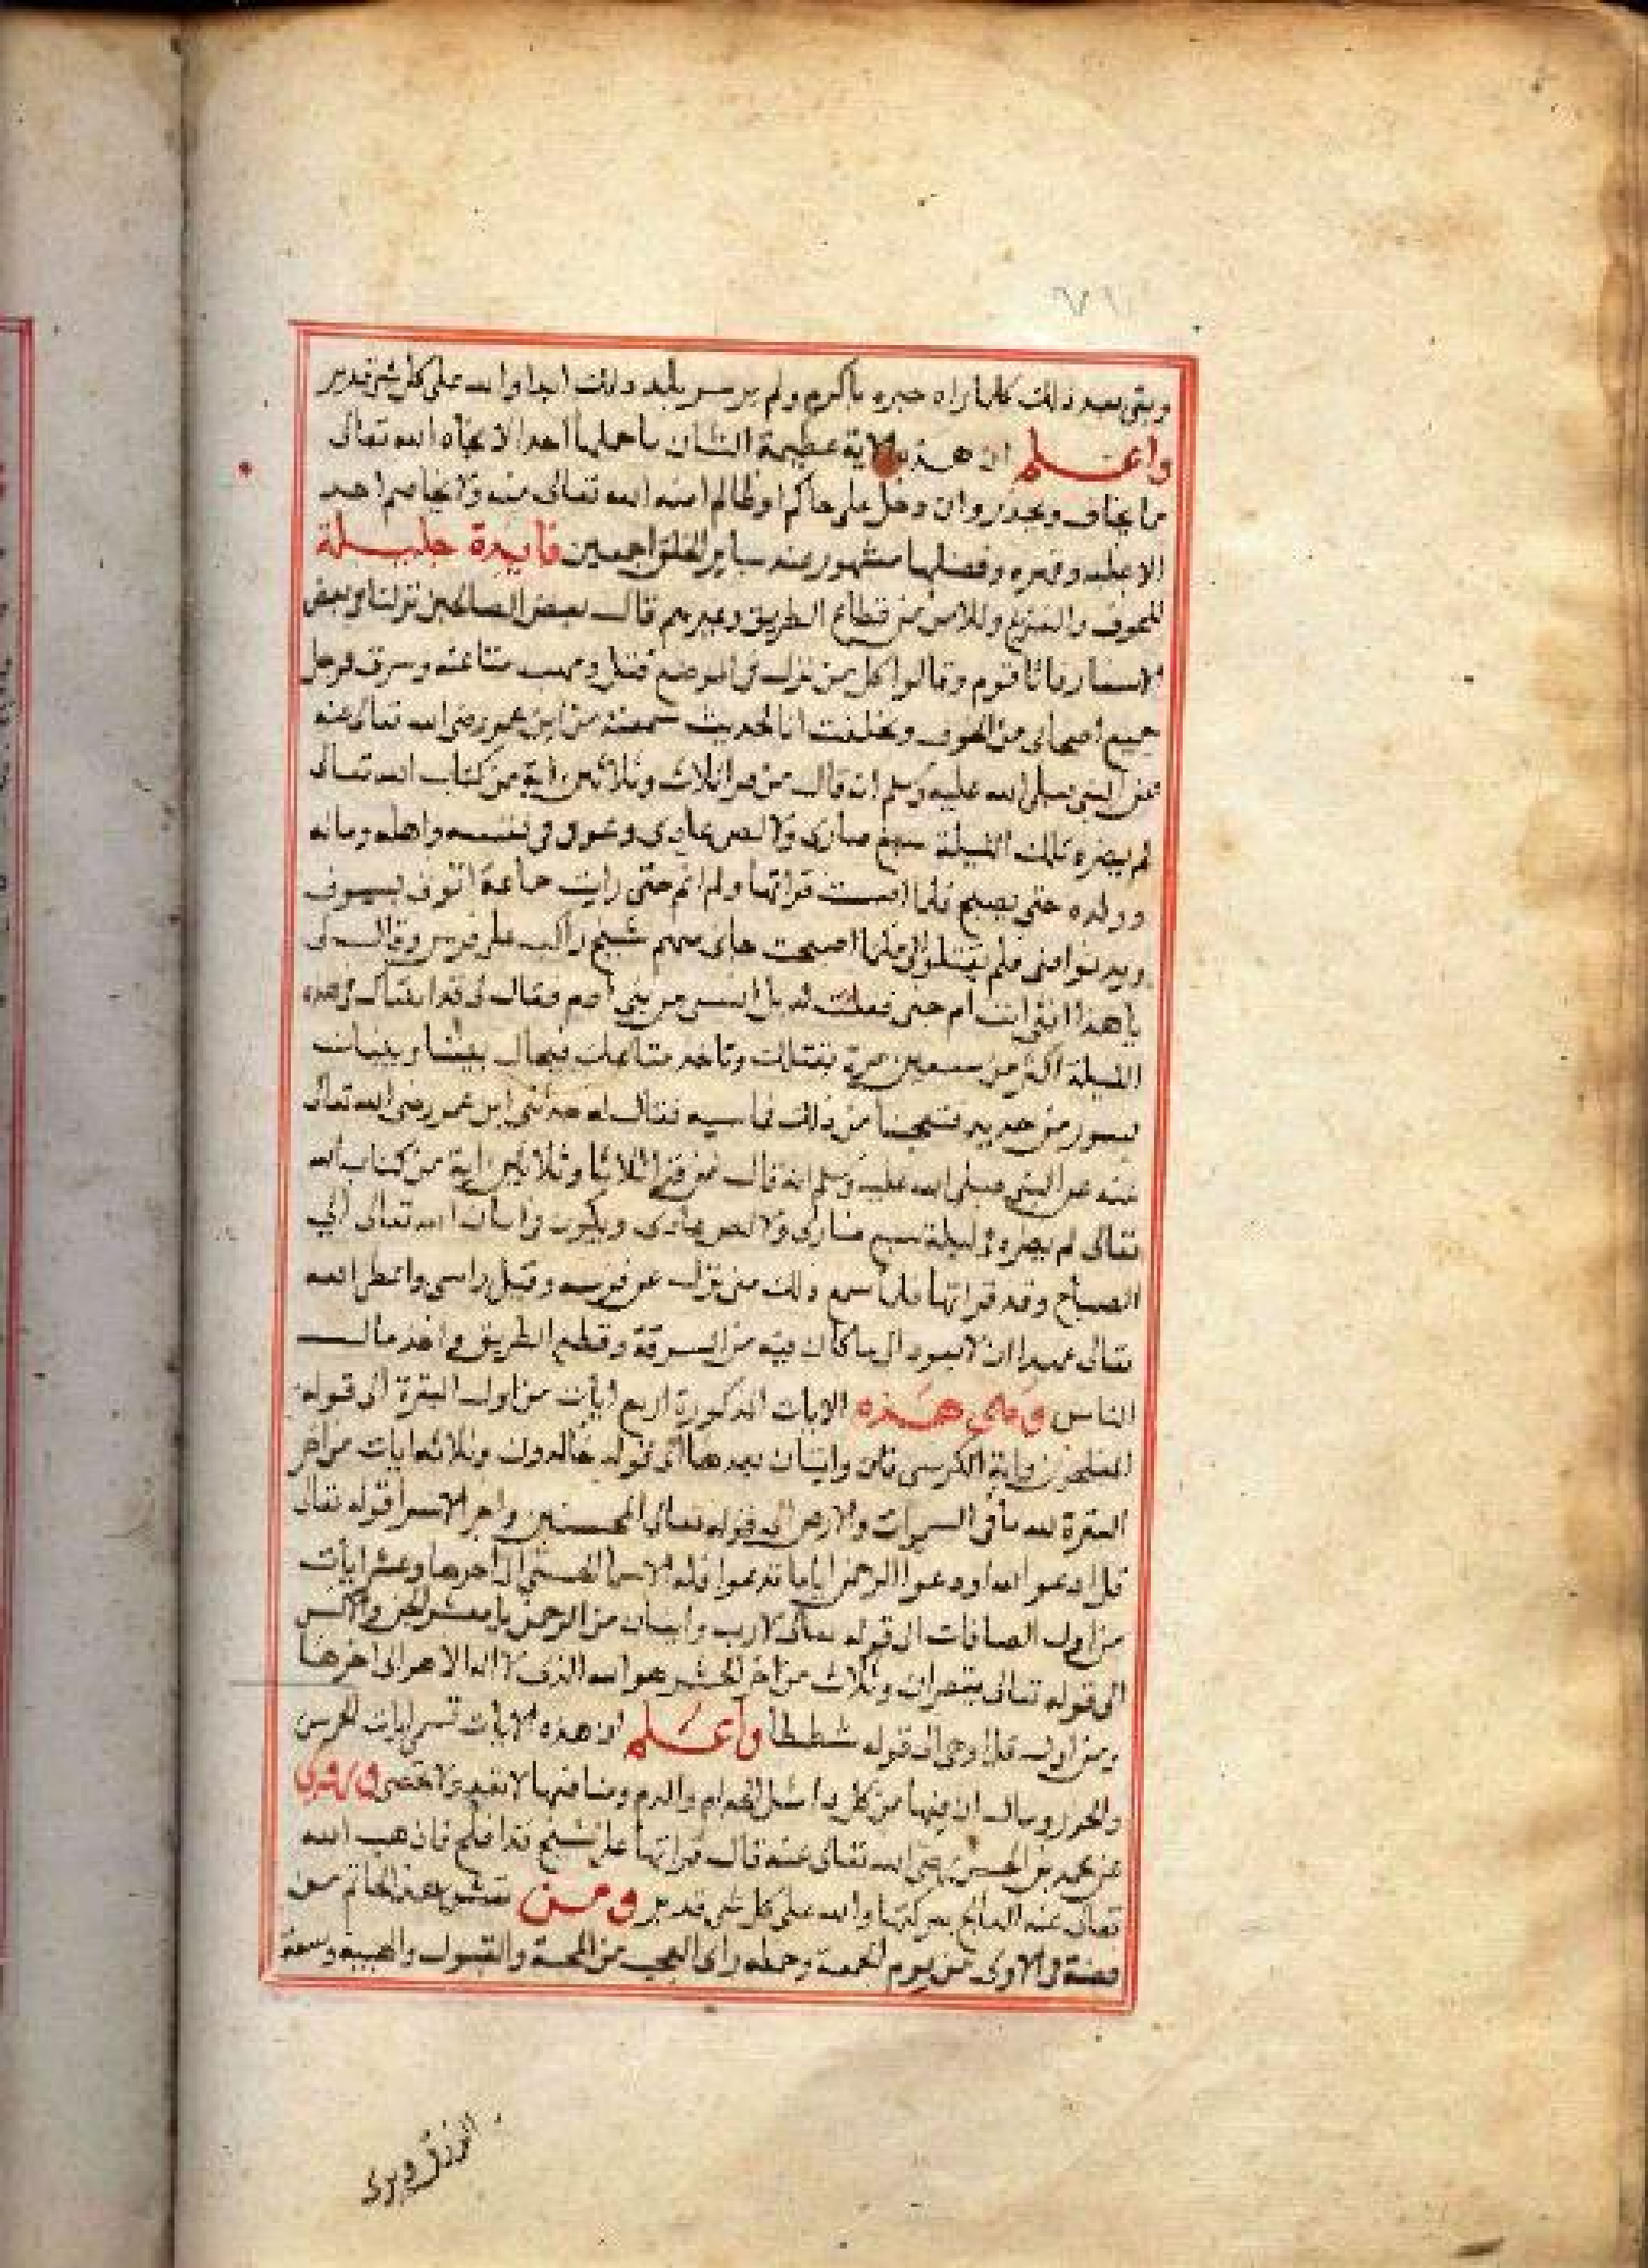 وبقي بعد ذلك كلما راه خيره باكرم ولم ير سو بعد ذلك ابدا والله على كل شي قدير
واعلم ان هذه الاية عظيمة الشان ما حملها احد الا نجاه الله تعالى
مما يخاف ويحذر وان دخل على حاكم او ظالم امنه الله تعالى منه ولا يخاصم احد
الا غلبه وقهره وفضلها مشهور عند ساير الخلق اجمعين فايدة جليلة
للخوف والفزع وللامن من قطاع الطريق وغيرهم قال بعض الصالحين نزلنا في بعض
الاسفار فاتانا قوم وقالوا كل من نزل في الموضع قتل ونهب متاعه وسرق فرحل
جميع اصحابي من الخوف وتخلفت انا لحديث سمعته من ابن عمر رضي الله تعالى عنه
عن النبي صلى الله عليه وسلم انه قال من قرا ثلاث وثلاثين اية من كتاب الله تعالى
لم يضره تلك الليلة سبع ضاري ولا لص عادي وعوفي في نفسه واهله وماله
وولده حتى يصبح فلما امسيت قراتها ولم انم حتى رايت جماعة اتوني بسيوف
ويدنوا مني فلم يصلوا الي فلما اصبحت جاني منهم شيخ راكب على فرس وقال لي
يا هذا انسي انت ام جني فقلت له بل انسي من بني ادم فقال لي قد اتيناك في هذه
الليلة اكثر من سبعين مرة نقتلك وناخذ متاعك فيحال بيننا وبينك
بسور من حديد فتعجبنا من ذلك فما سببه فقال له حدثني ابن عمر رضي الله تعالى
عنه عن النبي صلى الله عليه وسلم انه قال من قرا ثلاثا وثلاثين اية من كتاب الله
تعالى لم يضره في ليلة سبع ضاري ولا لص عادي ويكون في امان الله تعالى الي
الصباح وقد قراتها فلما سمع ذلك مني نزل عن فرسه وقبل راسي واعطى الله
تعالى عهدا ان لا يعود الى ما كان فيه من السرقة وقطع الطريق واخذ مال
الناس وهي هذه الايات المذكورة اربع ايات من اول البقرة الى قوله
المفلحون واية الكرسي وايتان بعدها الى قوله خالدون وثلاثه ايات من اخر
البقرة لله ما في السموات والارض الى قوله تعالى المحسنين واخر الاسرا قوله تعالى
قل ادعوا الله او ادعوا الرحمن اياما تدعوا فله الاسما الحسنى الى اخرها وعشر ايات
من اول الصافات الى قوله تعالى لازب وايتان من الرحمن يا معشر الجن والانس
الى قوله تعالى ينتصران وثلاث من اخر الحشر هو الله الذي لا اله الا هو الى اخرها
ومن اول قل اوحي الى قوله شططا واعلم ان هذه الايات تسمى ايات الحرس
والحرز ويقال ان فيها من كل دا مثل الجذام والدم ومنافعها لا تعد ولا تحصى وروي
عن محمد بن الحسن رضي الله تعالى عنه قال قراتها على شيخ قد افلج فاذهب الله
تعالى عنه الفالج ببركتها والله على كل شي قدير ومن نقش هذا الخاتم من
فضة في الاولى من يوم الجمعة وحمله راى العجب من المحبة والقبول والهيبة وسعة
الرزق ويرى